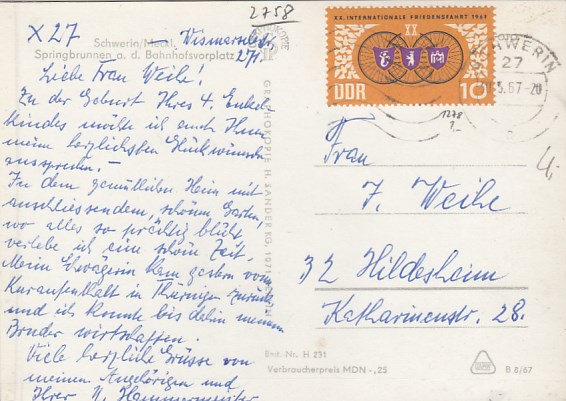 2758
X 27
Schwerin/Meckl. – Wismarsche Str.
Springbrunnen a. d. Bahnhofsvorplatz 271
Liebe Frau Weihe!
Zu der Geburt Ihres 4. Enkel-
kindes möchte ich auch Ihnen
meine herzlichsten Glückwünsche
aussprechen. –
In dem gemütlichen Heim mit
anschliessendem, schönem Garten,
wo alles so prächtig blüht
verlebe ich eine schöne Zeit.
Meine Schwägerin kam gestern vom
Kuraufenthalt in Thüringen zurück
und ich konnte bis dahin meinem
Bruder wirtschaften.
Viele herzliche Grüsse von
meinen Angehörigen und
Ihrer N. Hammermeister
GRAPHOKOPIE H. SANDER KG, 1071
XX. INTERNATIONALE FRIEDENSFAHRT 1967
XX
DDR 10
SCHWERIN
27
.5.67-20
1278
2
Frau
J. Weihe
32 Hildesheim
Katharinenstr. 28.
Best.-Nr. H 231
Verbraucherpreis MDN -,25
B 8/67